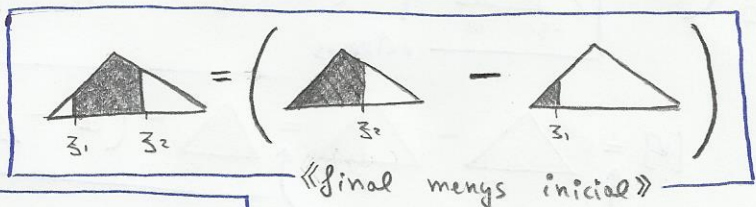 = ( - )
ʒ₁ ʒ₂ ʒ₂ ʒ₁
«final menys inicial»